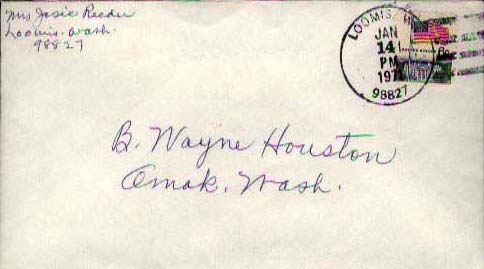 Mrs Josie Reeder
Loomis. Wash.
98827
LOOMIS, W
JAN
14
PM
1971
98827
B. Wayne Houston
Omak. Wash.